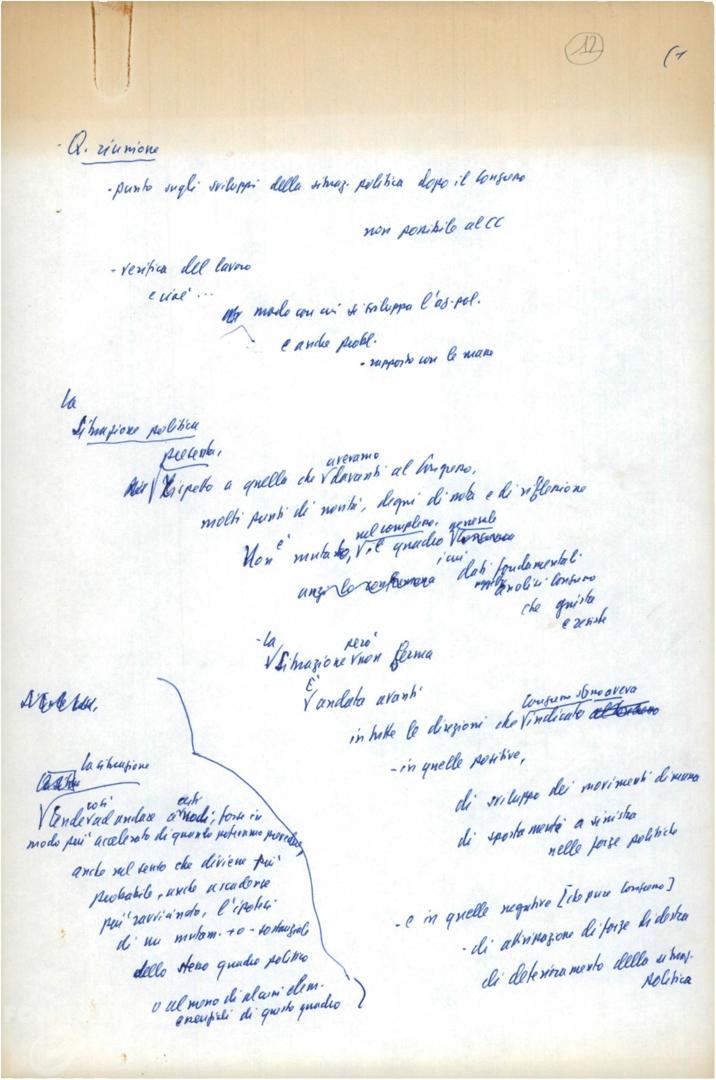 12
(1
- Q. riunione
- punto sugli sviluppi della situaz. politica dopo il Congresso
non possibile al CC
- verifica del lavoro
e cioè ...
modo con cui si sviluppa l'az. pol.
e anche probl.
- rapporto con le masse
La
Situazione politica
presenta,
Rispetto a quella che avevamo davanti al Congresso,
molti punti di novità, degni di nota e di riflessione
Non è mutato, nel complesso, il quadro generale
i cui dati fondamentali
anzi lo confermano
analisi Congresso
che giusta
e resiste
- La situazione però non ferma
È andata avanti
in tutte le direzioni che Congresso aveva indicato
- in quelle positive,
di sviluppo dei movimenti di massa
di spostamento a sinistra
nelle forze politiche
- e in quelle negative [che pure Congresso]
- di attivizzazione di forze di destra
di deterioramento della situaz.
politica
la situazione
tende così ad andare, forse in
modo più accelerato di quanto potessimo prevedere
anche nel senso che diviene più
probabile, anche a scadenze
più ravvicinate, l'ipotesi
di un mutam. + o - sostanziale
dello stesso quadro politico
o almeno di alcuni elem.
essenziali di questo quadro